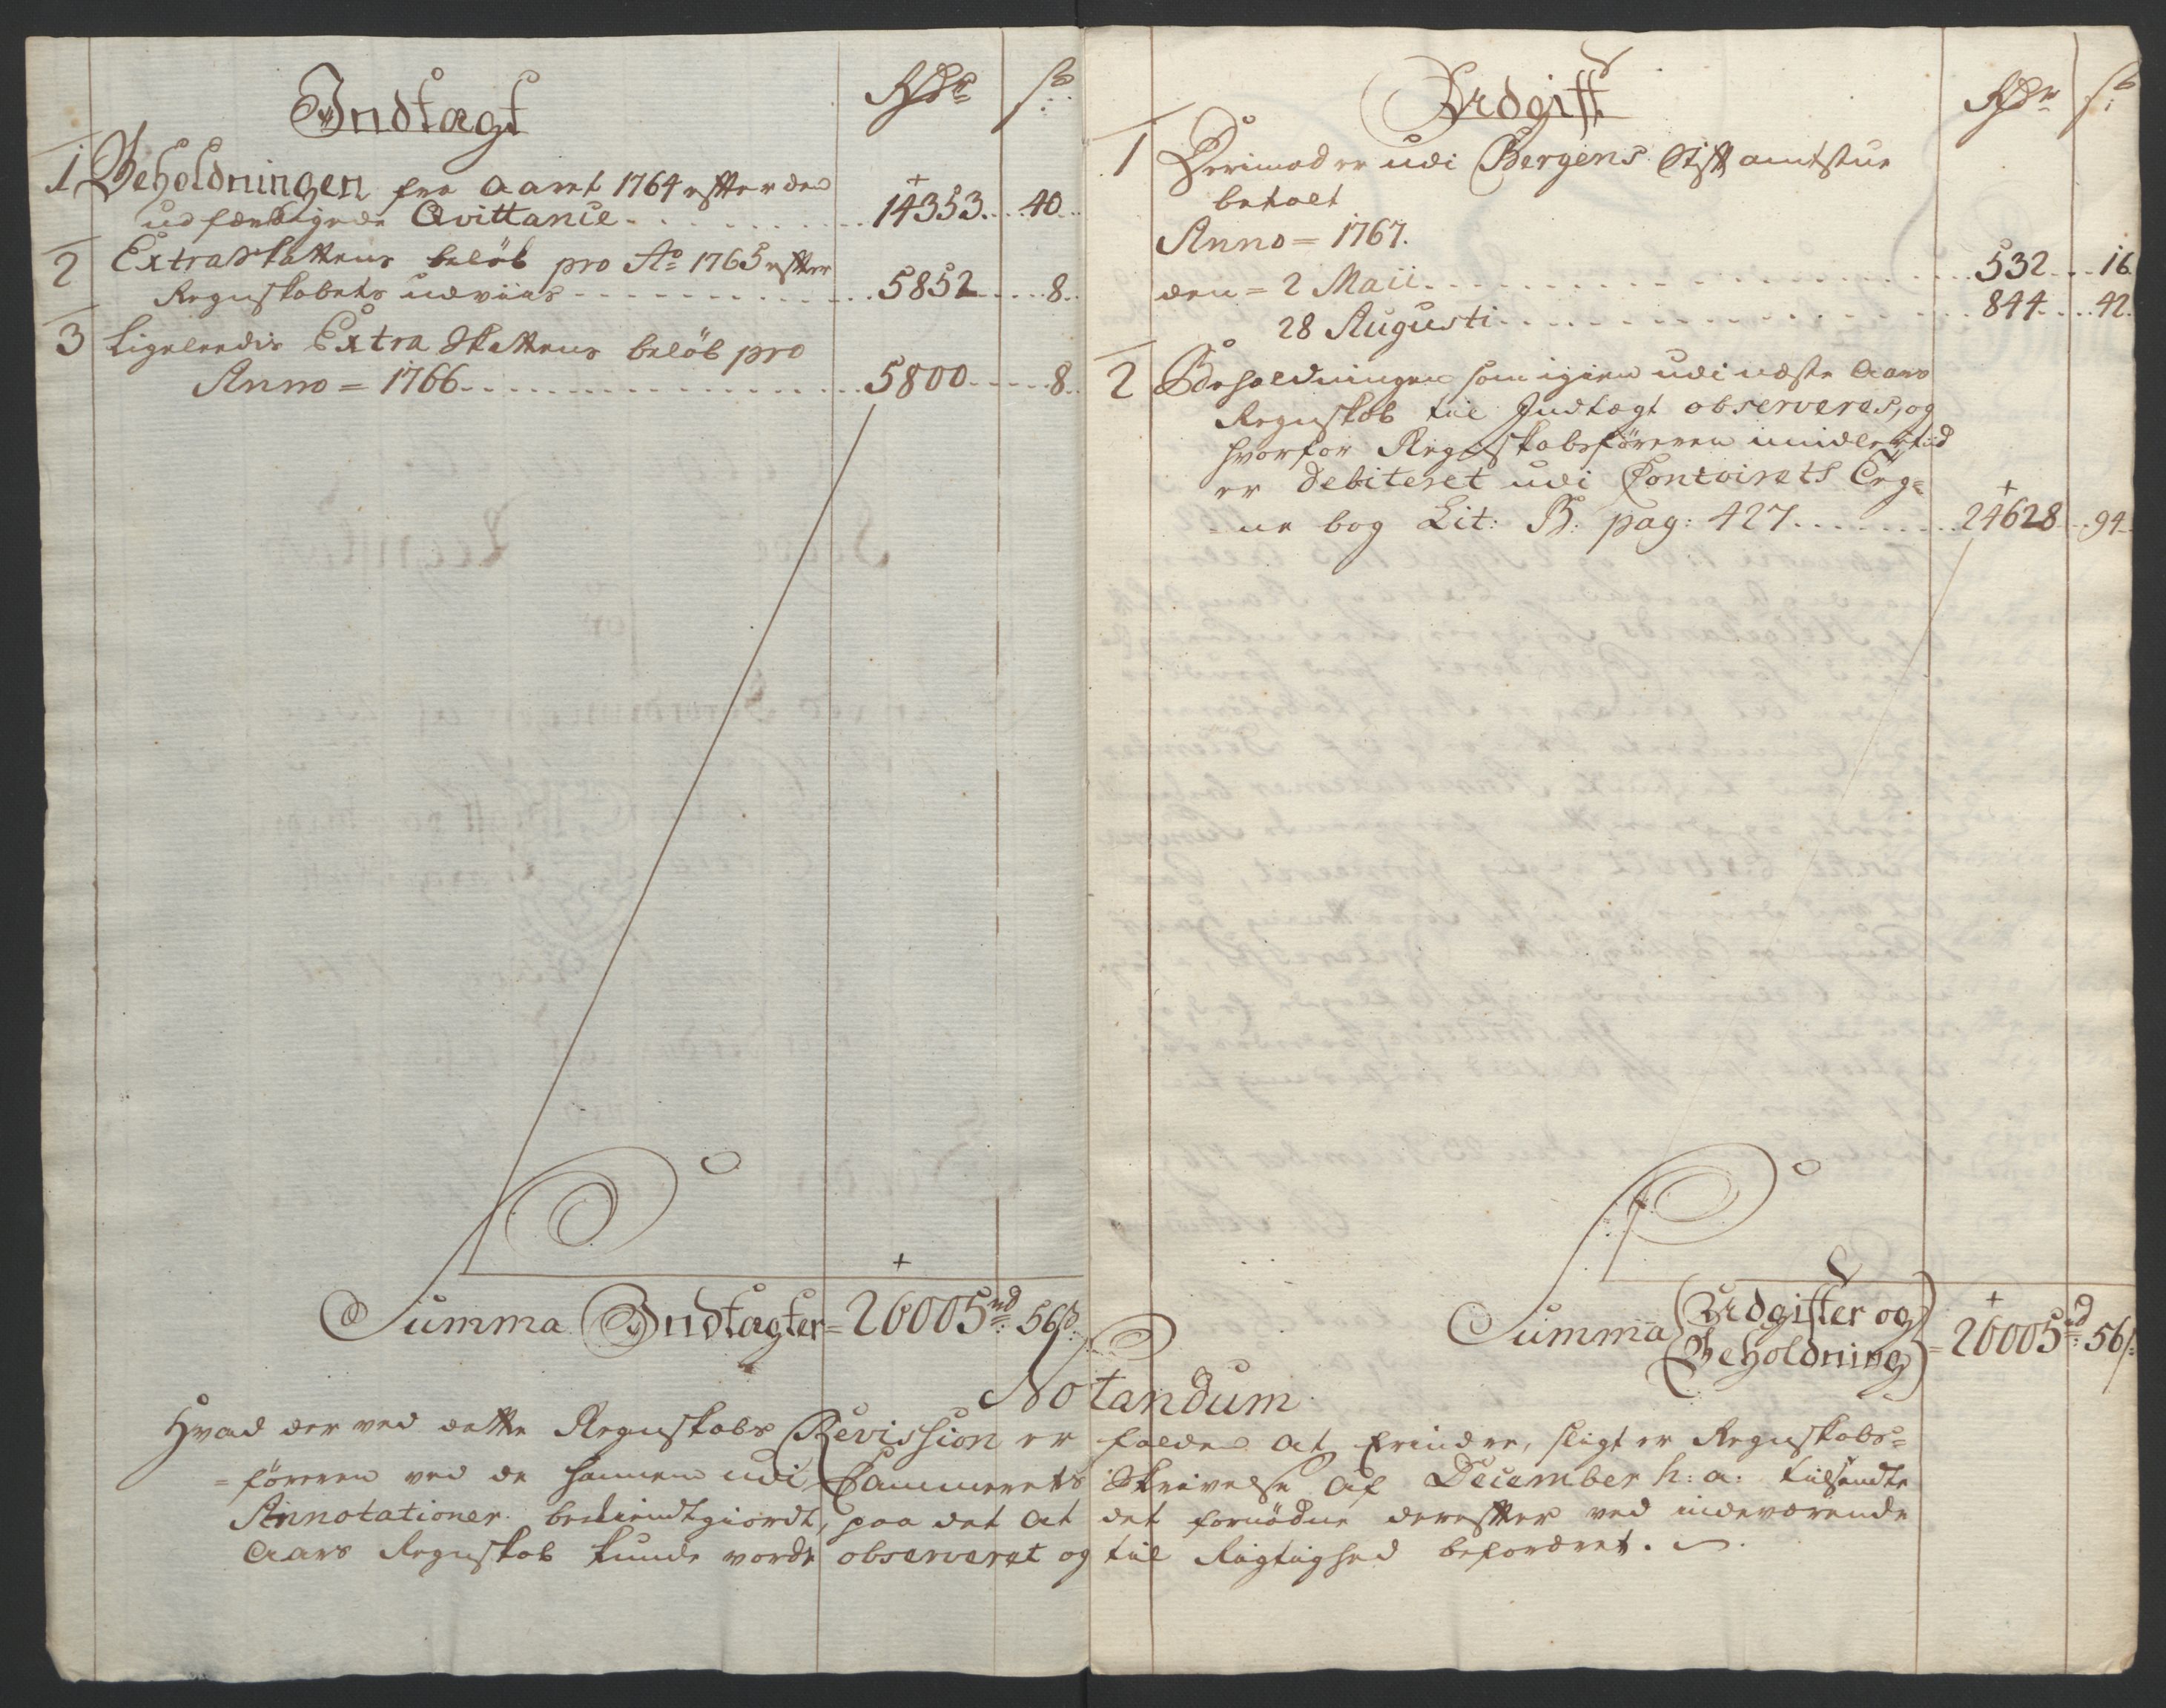 Indtægt
Rdr
s
1 Beholdningen fra Aaret 1764 efter den
udfærdigede Qvittance 14353 40
2 Extra Skattens beløb pro Ao 1765 efter
Regnskabets udviis 5852 8
3 Ligeleedis Extra Skattens beløb pro
Anno = 1766 5800 8
Summa Indtægter = 26005 rd 56 s
Udgift
Rdr
s
1 Derimod er udi Bergens Stiftamtstue
betalt
Anno = 1767.
den = 2 Maii 532 16
28 Augusti 844 42
2 Beholdningen som igien udi næste Aars
Regnskab til Indtægt observeres, og
hvorfor Regnskabsføreren imidlertid
er debiteret udi Contoirets Eræ=
ne bog Lit: B: pag: 427 24628 94
Summa Udgifter og
Beholdning = 26005 rd 56 s
Notandum
Hvad der ved dette Regnskabs Revission er falden at Erindre, sligt er Regnskabs=
=føreren ved de hannem udi Cammerets Skrivelse af December h: a: tilsendte
Annotationer bekiendtgiordt, paa det at det fornødne derefter ved indeværende
Aars Regnskab kunde vorde observeret og til Rigtighed befordret.